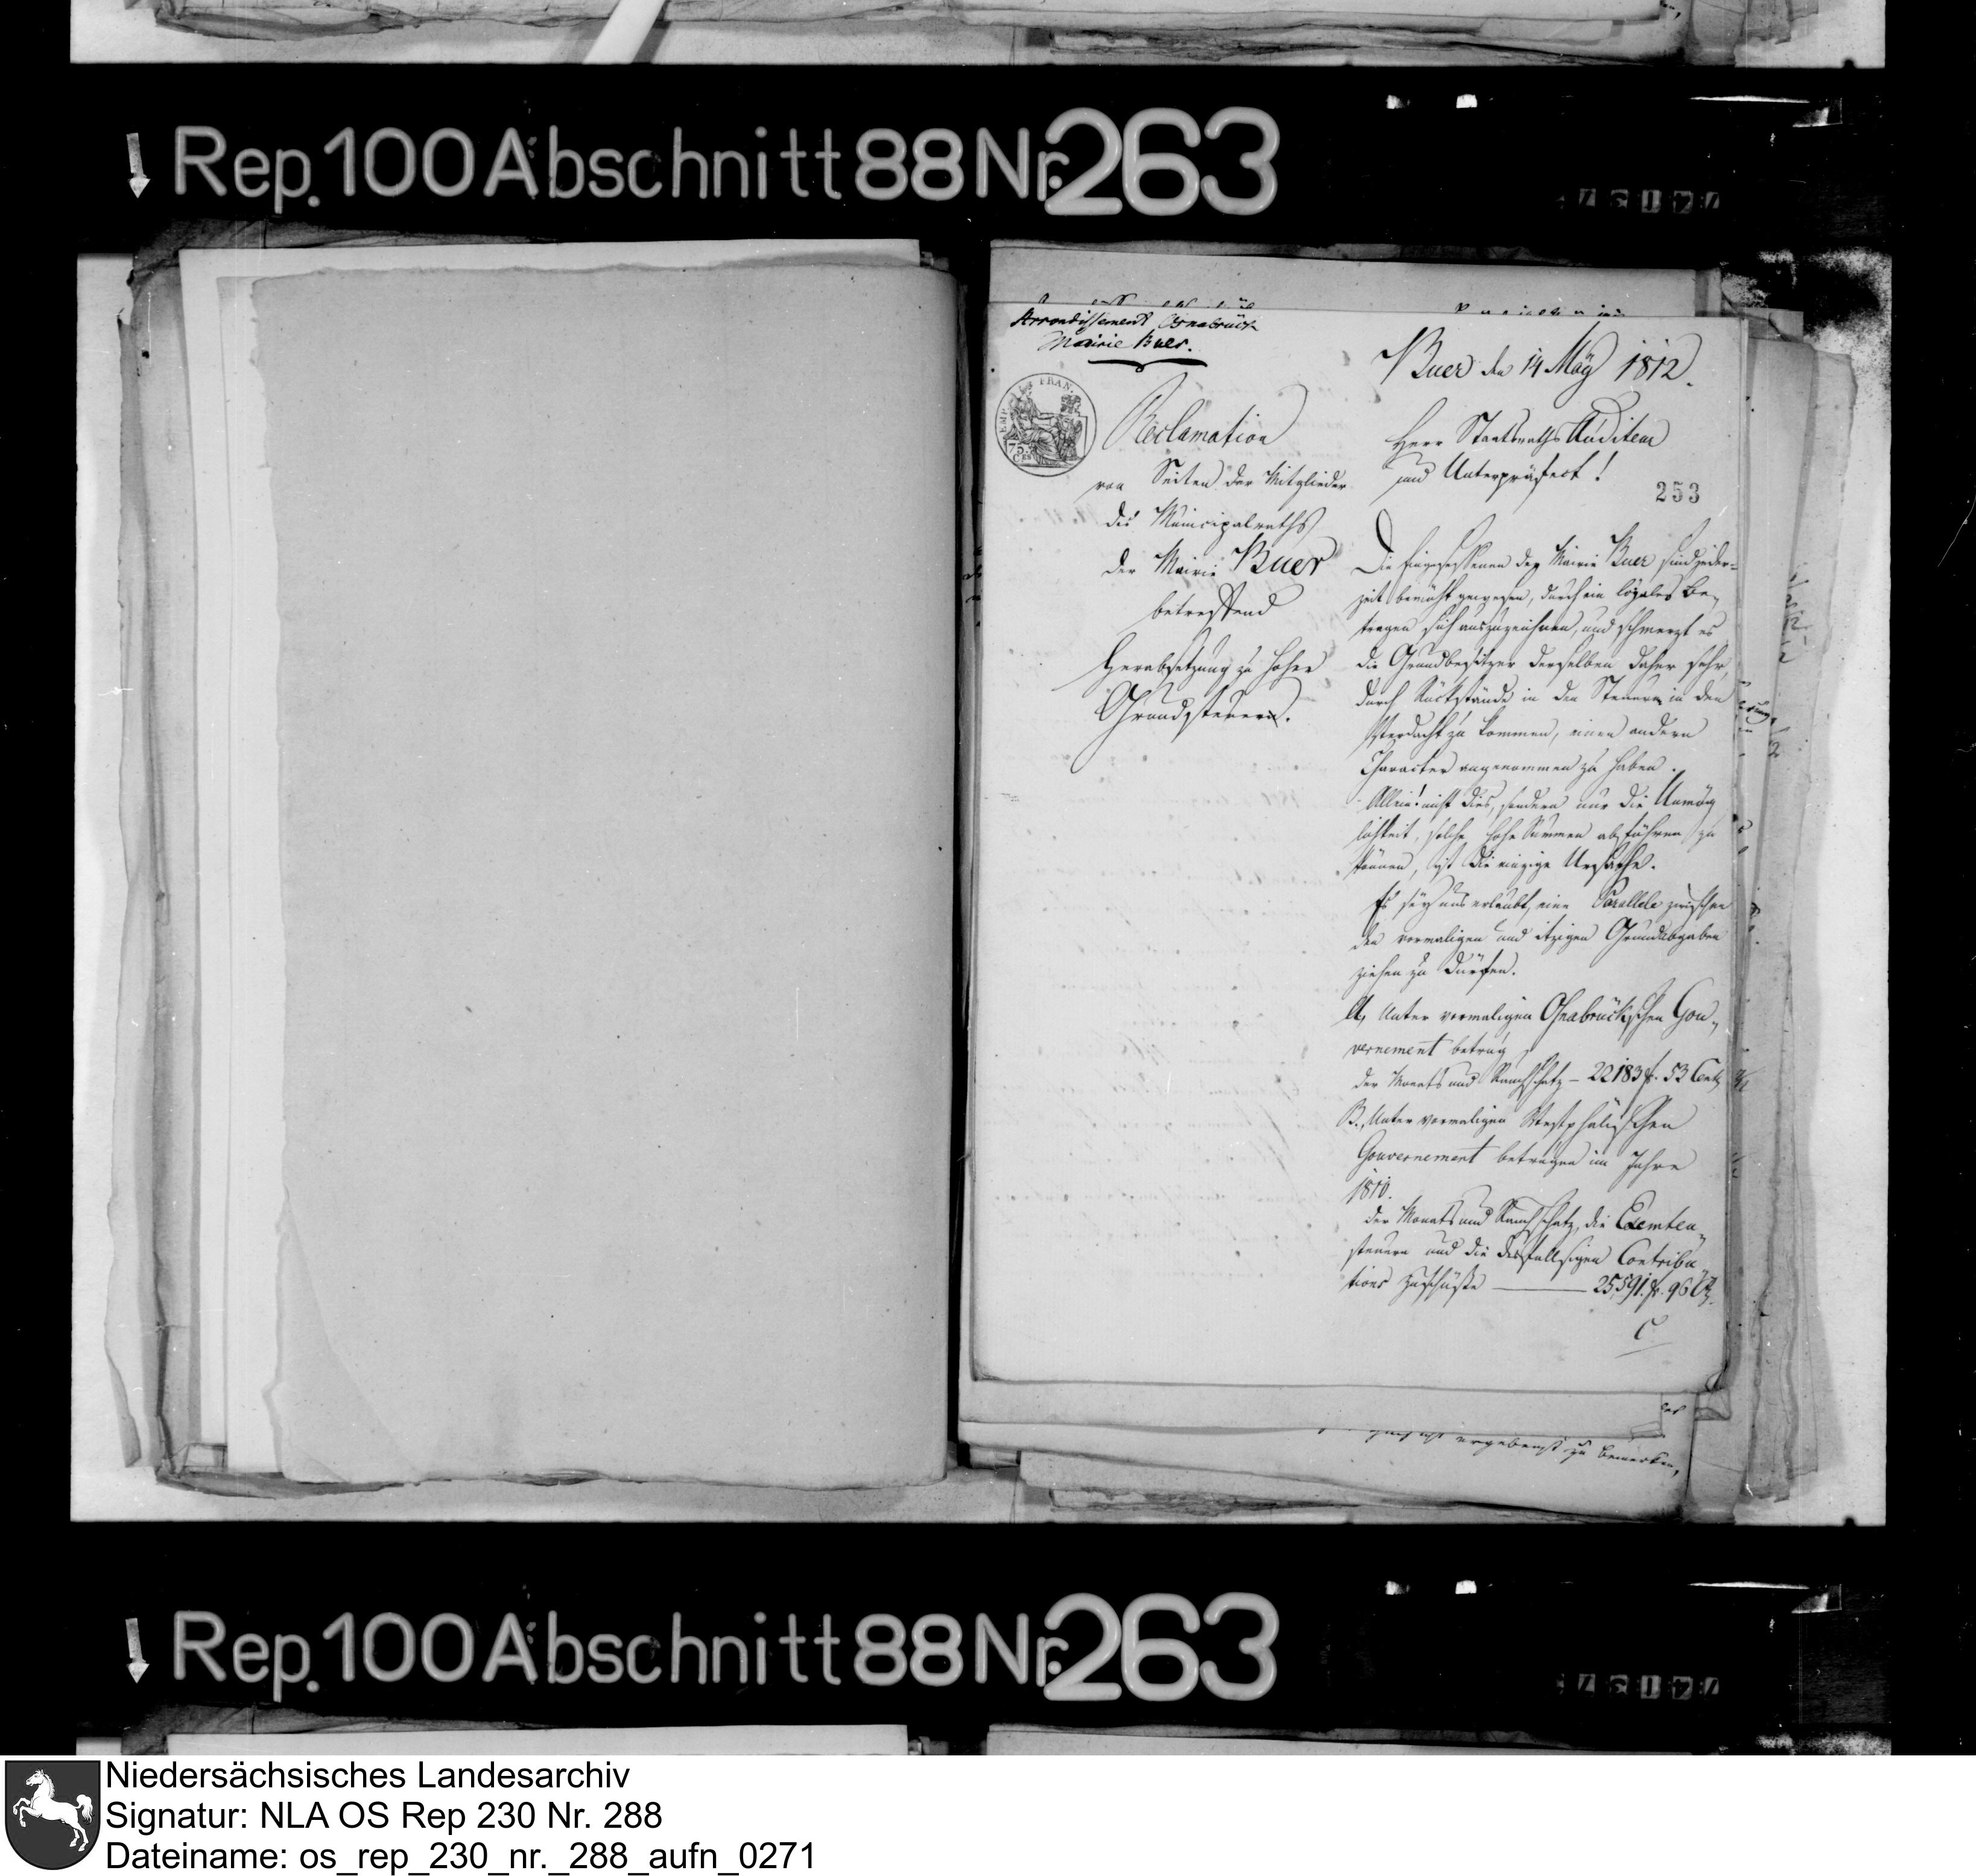 Rep. 100 Abschnitt 88 Nr. 263
Arrondissement Osnabrück
Mairie Buer.
EMP. FRAN.
75.
Ces
Reclamation
von Seiten der Mitglieder
des Municipalraths
der Mairie Buer
betreffend
Herabsetzung zu hoher
Grundsteuern.
Buer den 14 May 1812.
Herr Staatsraths Auditeur
und Unterpräfect!
253
Die Eingesessenen der Mairie Buer sind jeder-
zeit bemüht gewesen, durch ein loyales Be-
tragen sich auszuzeichnen, und schmerzt es
die Grundbesitzer derselben daher sehr,
durch Rückstände in den Steuern in den
Verdacht zu kommen, einen andern
Character angenommen zu haben.
Allein! nicht dies, sondern nur die Unmög
lichkeit, solche hohe Summen abführen zu
können, ist die einzige Ursache.
Es sey uns erlaubt, eine Parallele zwischen
den vormaligen und itzigen Grundabgaben
ziehen zu dürfen.
A, Unter vormaligen Osnabrückschen Gou-
vernement betrug
der Monats und Rauchschatz - 22183 fr. 53 Cent
B., Unter vormaligen Westphälischen
Gouvernement betrugen im Jahre
1810.
der Monats und Rauchschatz, die Exemten-
steuern und die desfallsigen Contribu
tions Zuschüße — 25,591. fr. 96 Ct.
C
ergebenst zu bemerken,
Rep. 100 Abschnitt 88 Nr. 263
Niedersächsisches Landesarchiv
Signatur: NLA OS Rep 230 Nr. 288
Dateiname: os_rep_230_nr._288_aufn_0271